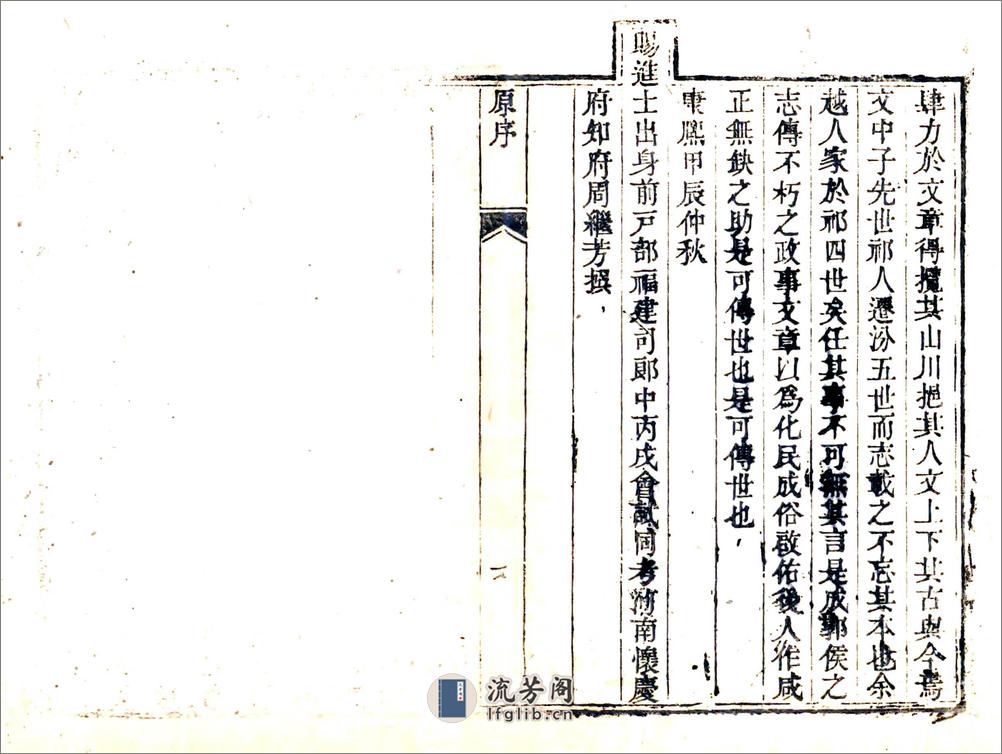 肆力於文章得攬其山川挹其人文上下其古與今焉
文中子先世祁人遷汾五世而志載之不忘其本也余
越人家於祁四世矣任其事不可無其言是成郭侯之
志傳不朽之政事文章以為化民成俗啟佑後人作咸
正無缺之助是可傳世也是可傳世也
康熙甲辰仲秋
賜進士出身前戶部福建司郎中丙戌會試同考河南懷慶
府知府周繼芳撰
原序
流芳阁
lfglib.cn